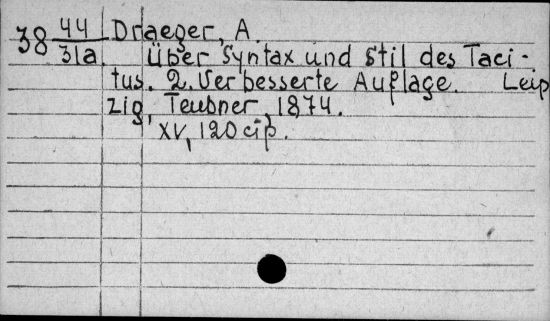 38 44/31a Draeger, A.
Über Syntax und Stil des Taci-
tus. 2. Verbesserte Auflage. Leip
zig, Teubner, 1874.
XV, 120 стр.